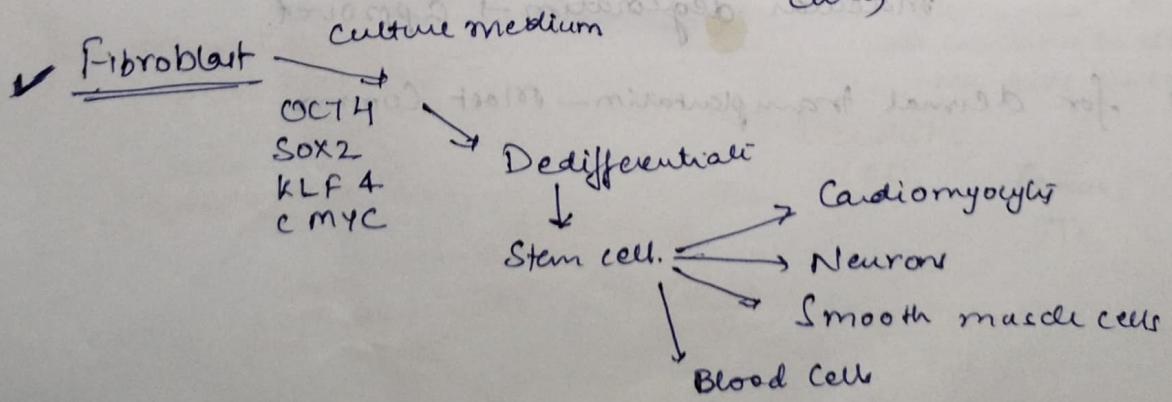 Culture medium
Fibroblast
OCT 4
SOX2
KLF 4
C MYC
Dedifferentiate
Stem cell.
Cardiomyocytes
Neurons
Smooth muscle cells
Blood Cells